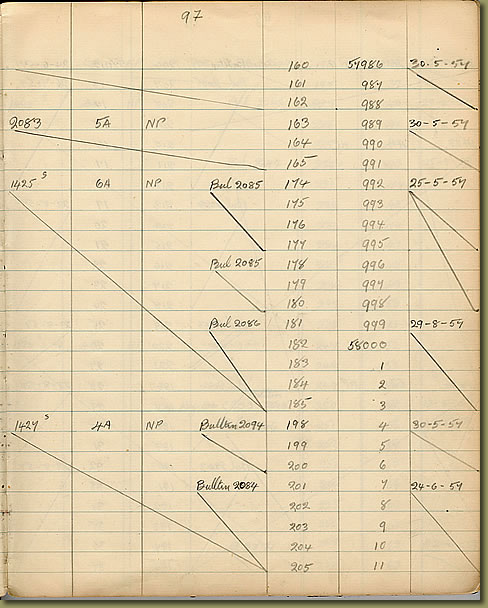 97
160 57986 30-5-57
161 987
162 988
2083 5A NP 163 989 30-5-57
164 990
165 991
1425 s 6A NP Bul 2085 174 992 25-5-57
175 993
176 994
177 995
Bul 2085 178 996
179 997
180 998
Bul 2086 181 999 29-8-57
182 58000
183 1
184 2
185 3
1427 s 4A NP Bulltin 2094 198 4 30-5-57
199 5
200 6
Bulltin 2084 201 7 24-6-57
202 8
203 9
204 10
205 11